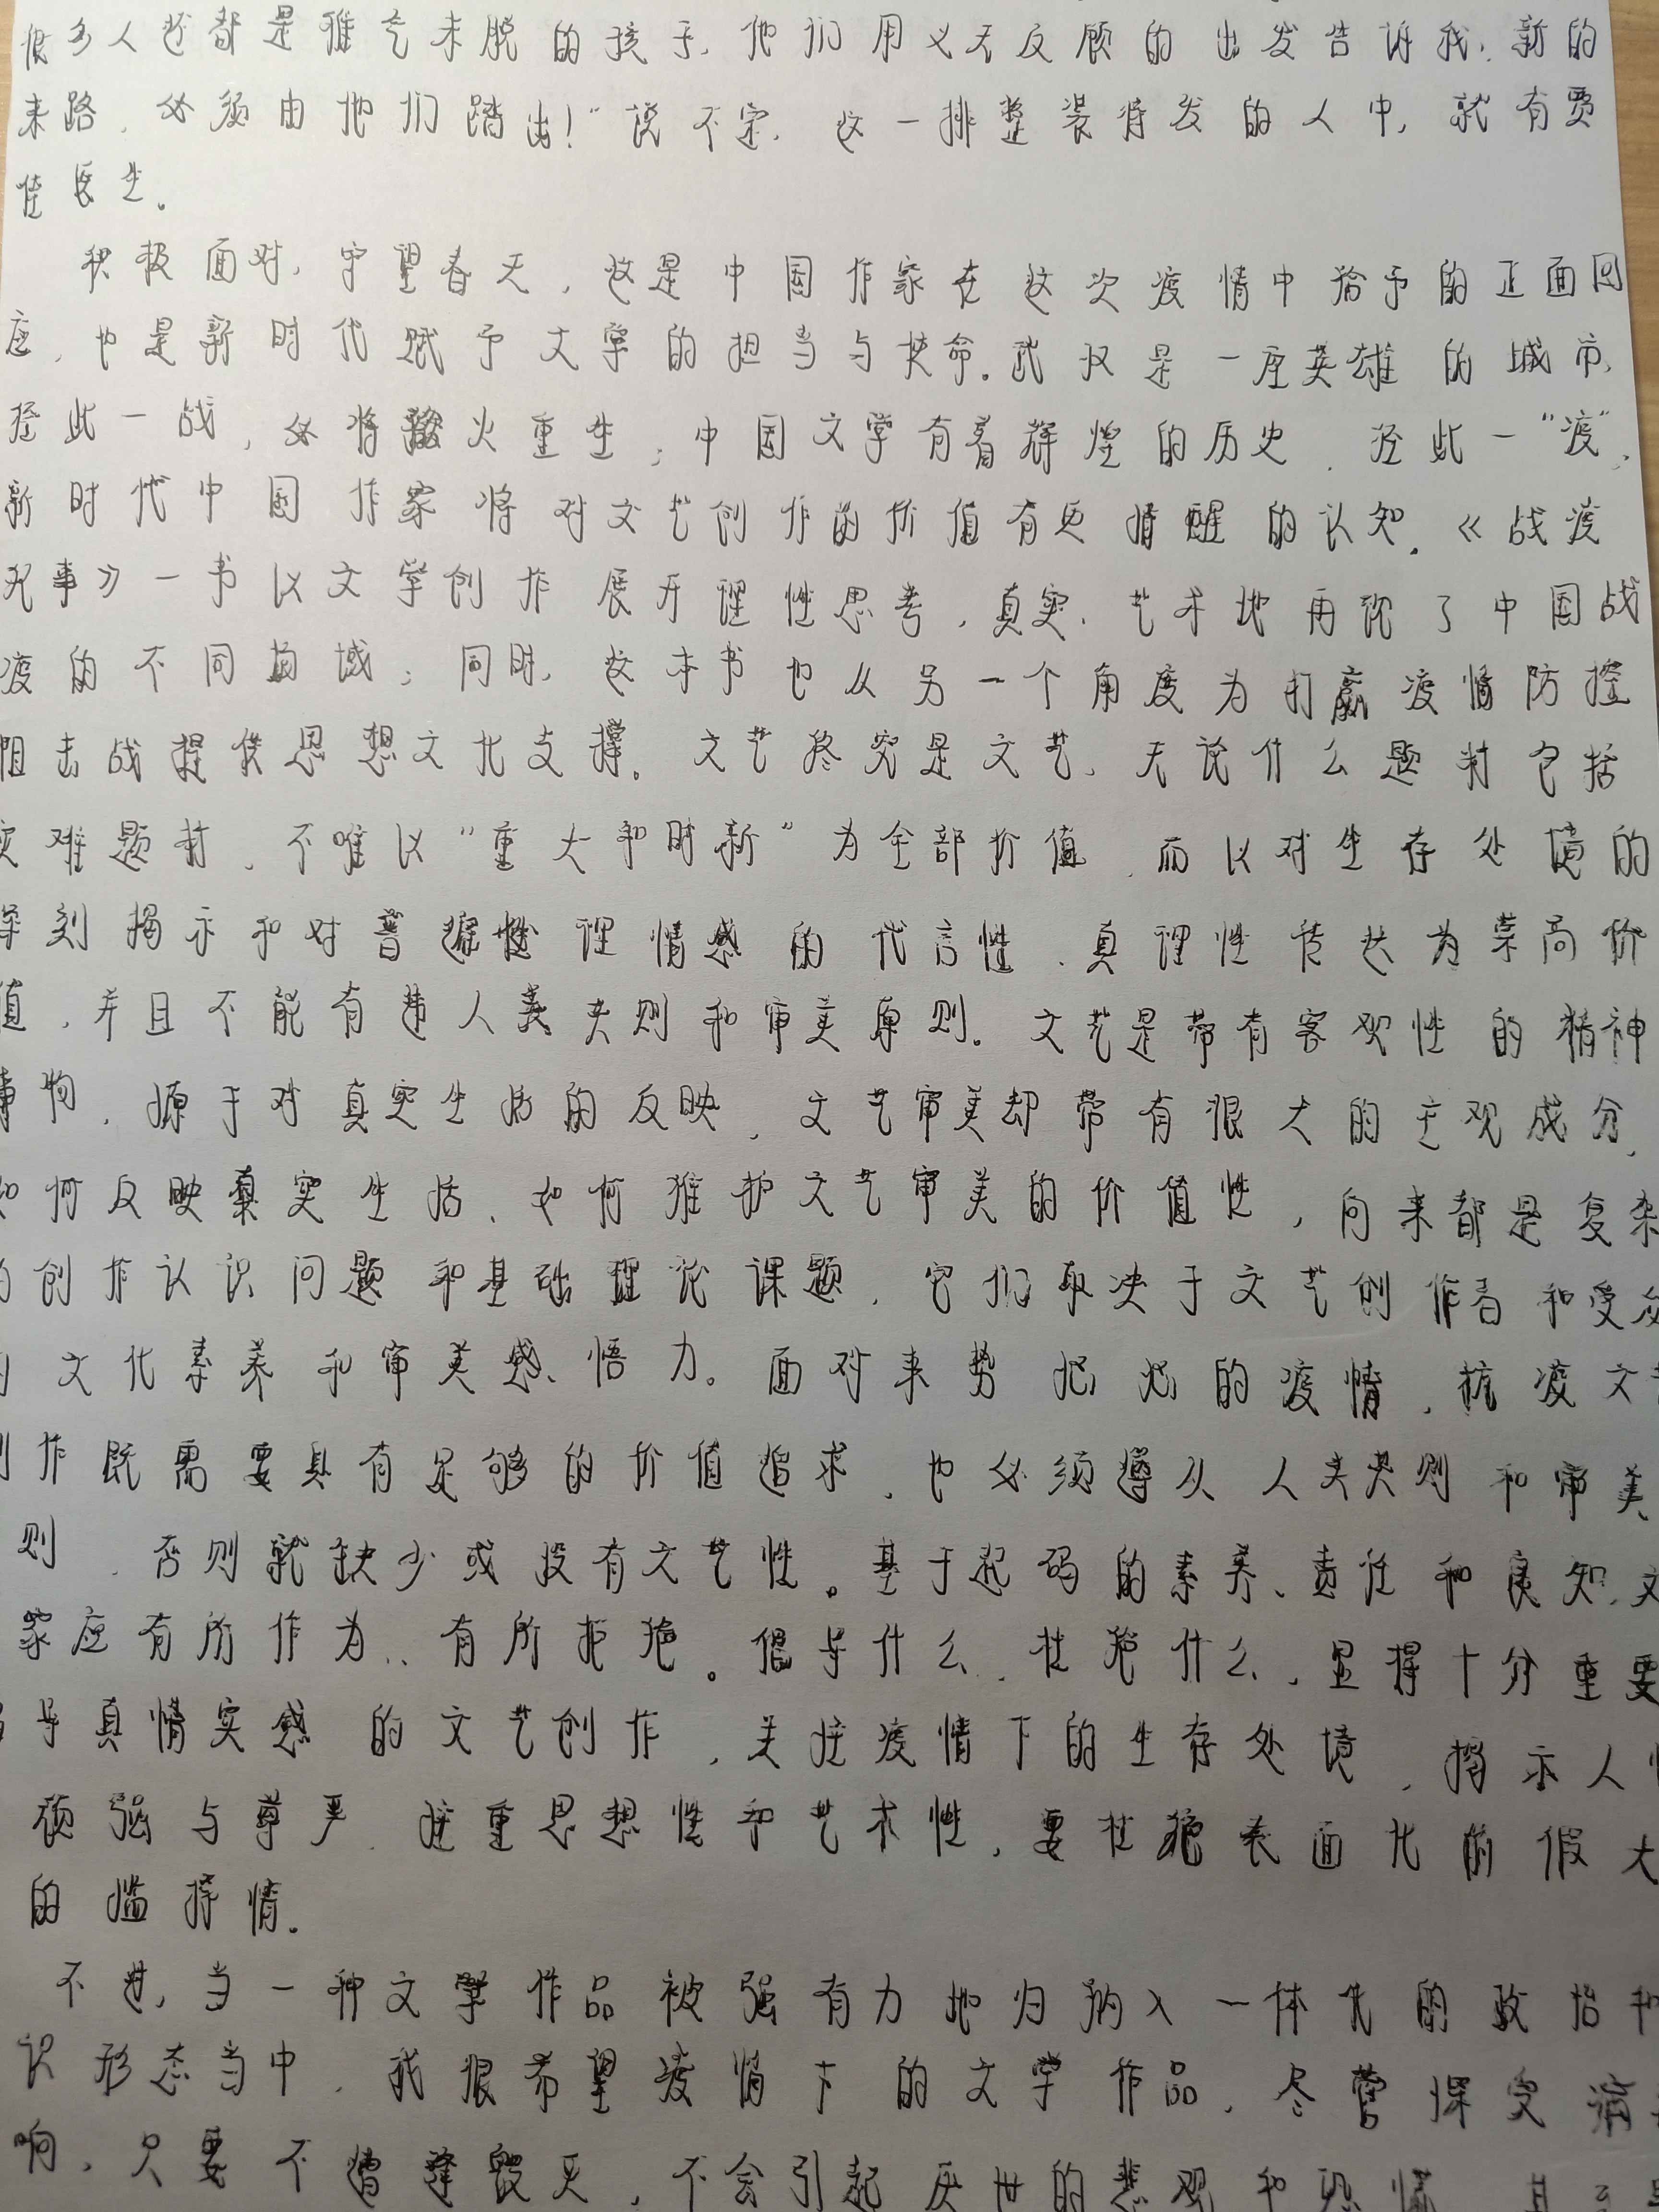 很多人还都是稚气未脱的孩子,他们用义无反顾的出发告诉我,新的
来路,必须由他们踏出!”说不定,这一排整装待发的人中,就有贾
佳医生。
积极面对,守望春天,这是中国作家在这次疫情中给予的正面回
应,也是新时代赋予文学的担当与使命。武汉是一座英雄的城市,
经此一战,必将火重生;中国文学有着辉煌的历史,经此一“疫”,
新时代中国作家将对文艺创作的价值有更清醒的认知。《战疫
纪事》一书以文学创作展开理性思考,真实、艺术地再现了中国战
疫的不同场域;同时,这本书也从另一个角度为打赢疫情防控
阻击战提供思想文化支撑。文艺终究是文艺,无论什么题材包括
灾难题材,不唯以“重大和时新”为全部价值,而以对生存处境的
深刻揭示和对普遍性理情感的代言性、真理性传达为崇高价
值,并且不能有违人类法则和审美原则。文艺是带有客观性的精神
事物,源于对真实生活的反映,文艺审美却带有很大的主观成分,
如何反映真实生活、如何维护文艺审美的价值性,向来都是复杂
的创作认识问题和基础理论课题,它们取决于文艺创作者和受众
的文化素养和审美感悟力。面对来势汹汹的疫情,抗疫文艺
创作既需要具有足够的价值追求,也必须遵从人类法则和审美
则,否则就缺少或没有文艺性。基于起码的素养、责任和良知,文
家应有所作为、有所拒绝。倡导什么,拒绝什么,显得十分重要
倡导真情实感的文艺创作,关注疫情下的生存处境,揭示人性
顽强与尊严,注重思想性和艺术性,要拒绝表面化的假大
的滥抒情。
不过,当一种文学作品被强有力地归纳入一体化的政治和
识形态当中,我很希望疫情下的文学作品,尽管深受消
响,只要不遭逢毁灭,不会引起厌世的悲观和恐慌,甚至